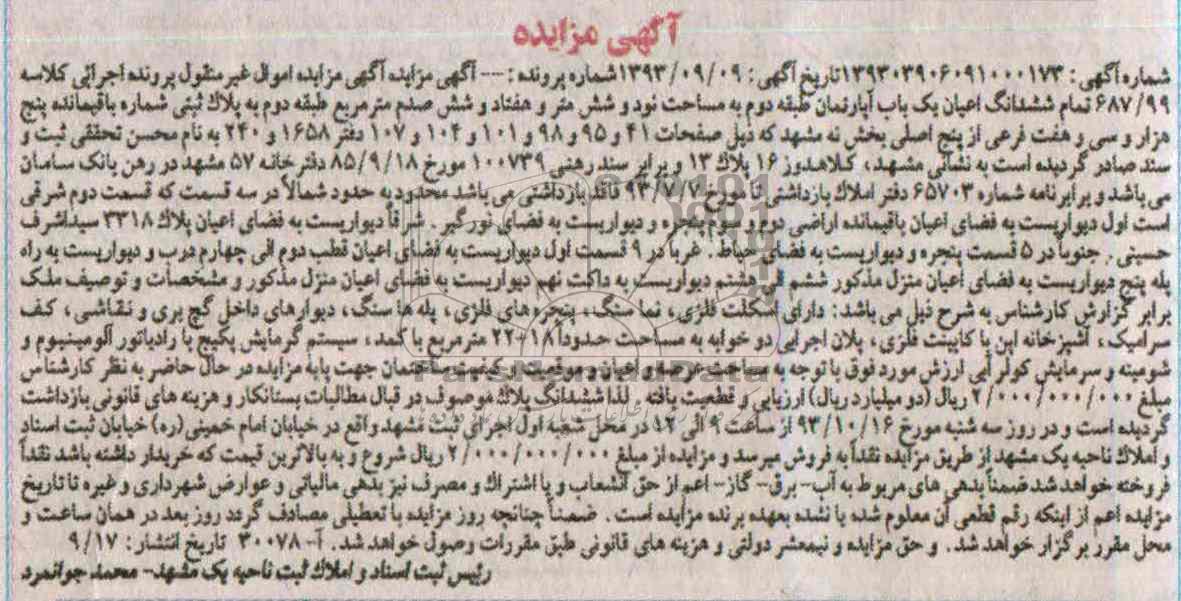 آگهی مزایده
شماره آگهی : ۱۳۹۳۰۳۹۰۶۰۹۱۰۰۰۱۷۳ تاریخ آگهی : ۱۳۹۳/۰۹/۰۹ شماره پرونده : --- آگهی مزایده آگهی مزایده اموال غیر منقول پرونده اجرائی کلاسه
۶۸۷/۹۹ تمام ششدانگ اعیان یک باب آپارتمان طبقه دوم به مساحت نود و شش متر و هفتاد و شش صدم متر مربع طبقه دوم به پلاک ثبتی شماره باقیمانده پنج
هزار و سی و هفت فرعی از پنج اصلی بخش نه مشهد که ذیل صفحات ۴۱ و ۹۵ و ۹۸ و ۱۰۱ و ۱۰۴ و ۱۰۷ دفتر ۱۶۵۸ و ۲۴۰ به نام محسن تحققی ثبت و
سند صادر گردیده است به نشانی مشهد، کلاهدوز ۱۶ پلاک ۱۳ و برابر سند رهنی ۱۰۰۷۳۹ مورخ ۸۵/۹/۱۸ دفترخانه ۵۷ مشهد در رهن بانک سامان
می باشد و برابر نامه شماره ۶۵۷۰۳ دفتر املاک بازداشتی تا مورخ ۹۳/۷/۷ فاقد بازداشتی می باشد محدود به حدود شمالاً در سه قسمت که قسمت دوم شرقی
است اول دیواریست به فضای اعیان باقیمانده اراضی دوم و سوم پنجره و دیواریست به فضای نورگیر . شرقاً دیواریست به فضای اعیان پلاک ۳۳۱۸ سیداشرف
حسینی . جنوباً در ۵ قسمت پنجره و دیواریست به فضای حیاط . غرباً در ۹ قسمت اول دیواریست به فضای اعیان قطب دوم الی چهارم درب و دیواریست به راه
پله پنج دیواریست به فضای اعیان منزل مذکور ششم الی هشتم دیواریست به داکت نهم دیواریست به فضای اعیان منزل مذکور و مشخصات و توصیف ملک
برابر گزارش کارشناس به شرح ذیل می باشد: دارای اسکلت فلزی، نما سنگ، پنجره های فلزی، پله ها سنگ، دیوارهای داخل گچ بری و نقاشی، کف
سرامیک، آشپزخانه اپن با کابینت فلزی، پلان اجرایی دو خوابه به مساحت حدوداً ۱۸-۲۲ متر مربع با کمد، سیستم گرمایش پکیج با رادیاتور آلومینیوم و
شومینه و سرمایش کولر آبی ارزش مورد فوق با توجه به مساحت عرصه و اعیان و موقعیت و کیفیت ساختمان جهت پایه مزایده در حال حاضر به نظر کارشناس
مبلغ ۲/۰۰۰/۰۰۰/۰۰۰ ریال (دو میلیارد ریال) ارزیابی و قطعیت یافته . لذا ششدانگ پلاک موصوف در قبال مطالبات بستانکار و هزینه های قانونی بازداشت
گردیده است و در روز سه شنبه مورخ ۹۳/۱۰/۱۶ از ساعت ۹ الی ۱۲ در محل شعبه اول اجرای ثبت مشهد واقع در خیابان امام خمینی(ره) خیابان ثبت اسناد
و املاک ناحیه یک مشهد از طریق مزایده نقداً به فروش میرسد و مزایده از مبلغ ۲/۰۰۰/۰۰۰/۰۰۰ ریال شروع و به بالاترین قیمت که خریدار داشته باشد نقداً
فروخته خواهد شد ضمناً بدهی های مربوط به آب- برق- گاز- اعم از حق انشعاب و یا اشتراک و مصرف نیز بدهی مالیاتی و عوارض شهرداری و غیره تا تاریخ
مزایده اعم از اینکه رقم قطعی آن معلوم شده یا نشده بعهده برنده مزایده است . ضمناً چنانچه روز مزایده با تعطیلی مصادف گردد روز بعد در همان ساعت و
محل مقرر برگزار خواهد شد. و حق مزایده و نیمعشر دولتی و هزینه های قانونی طبق مقررات وصول خواهد شد. آ- ۳۰۰۷۸ تاریخ انتشار: ۹/۱۷
رئیس ثبت اسناد و املاک ثبت ناحیه یک مشهد- محمد جوانمرد
ParsNamadData